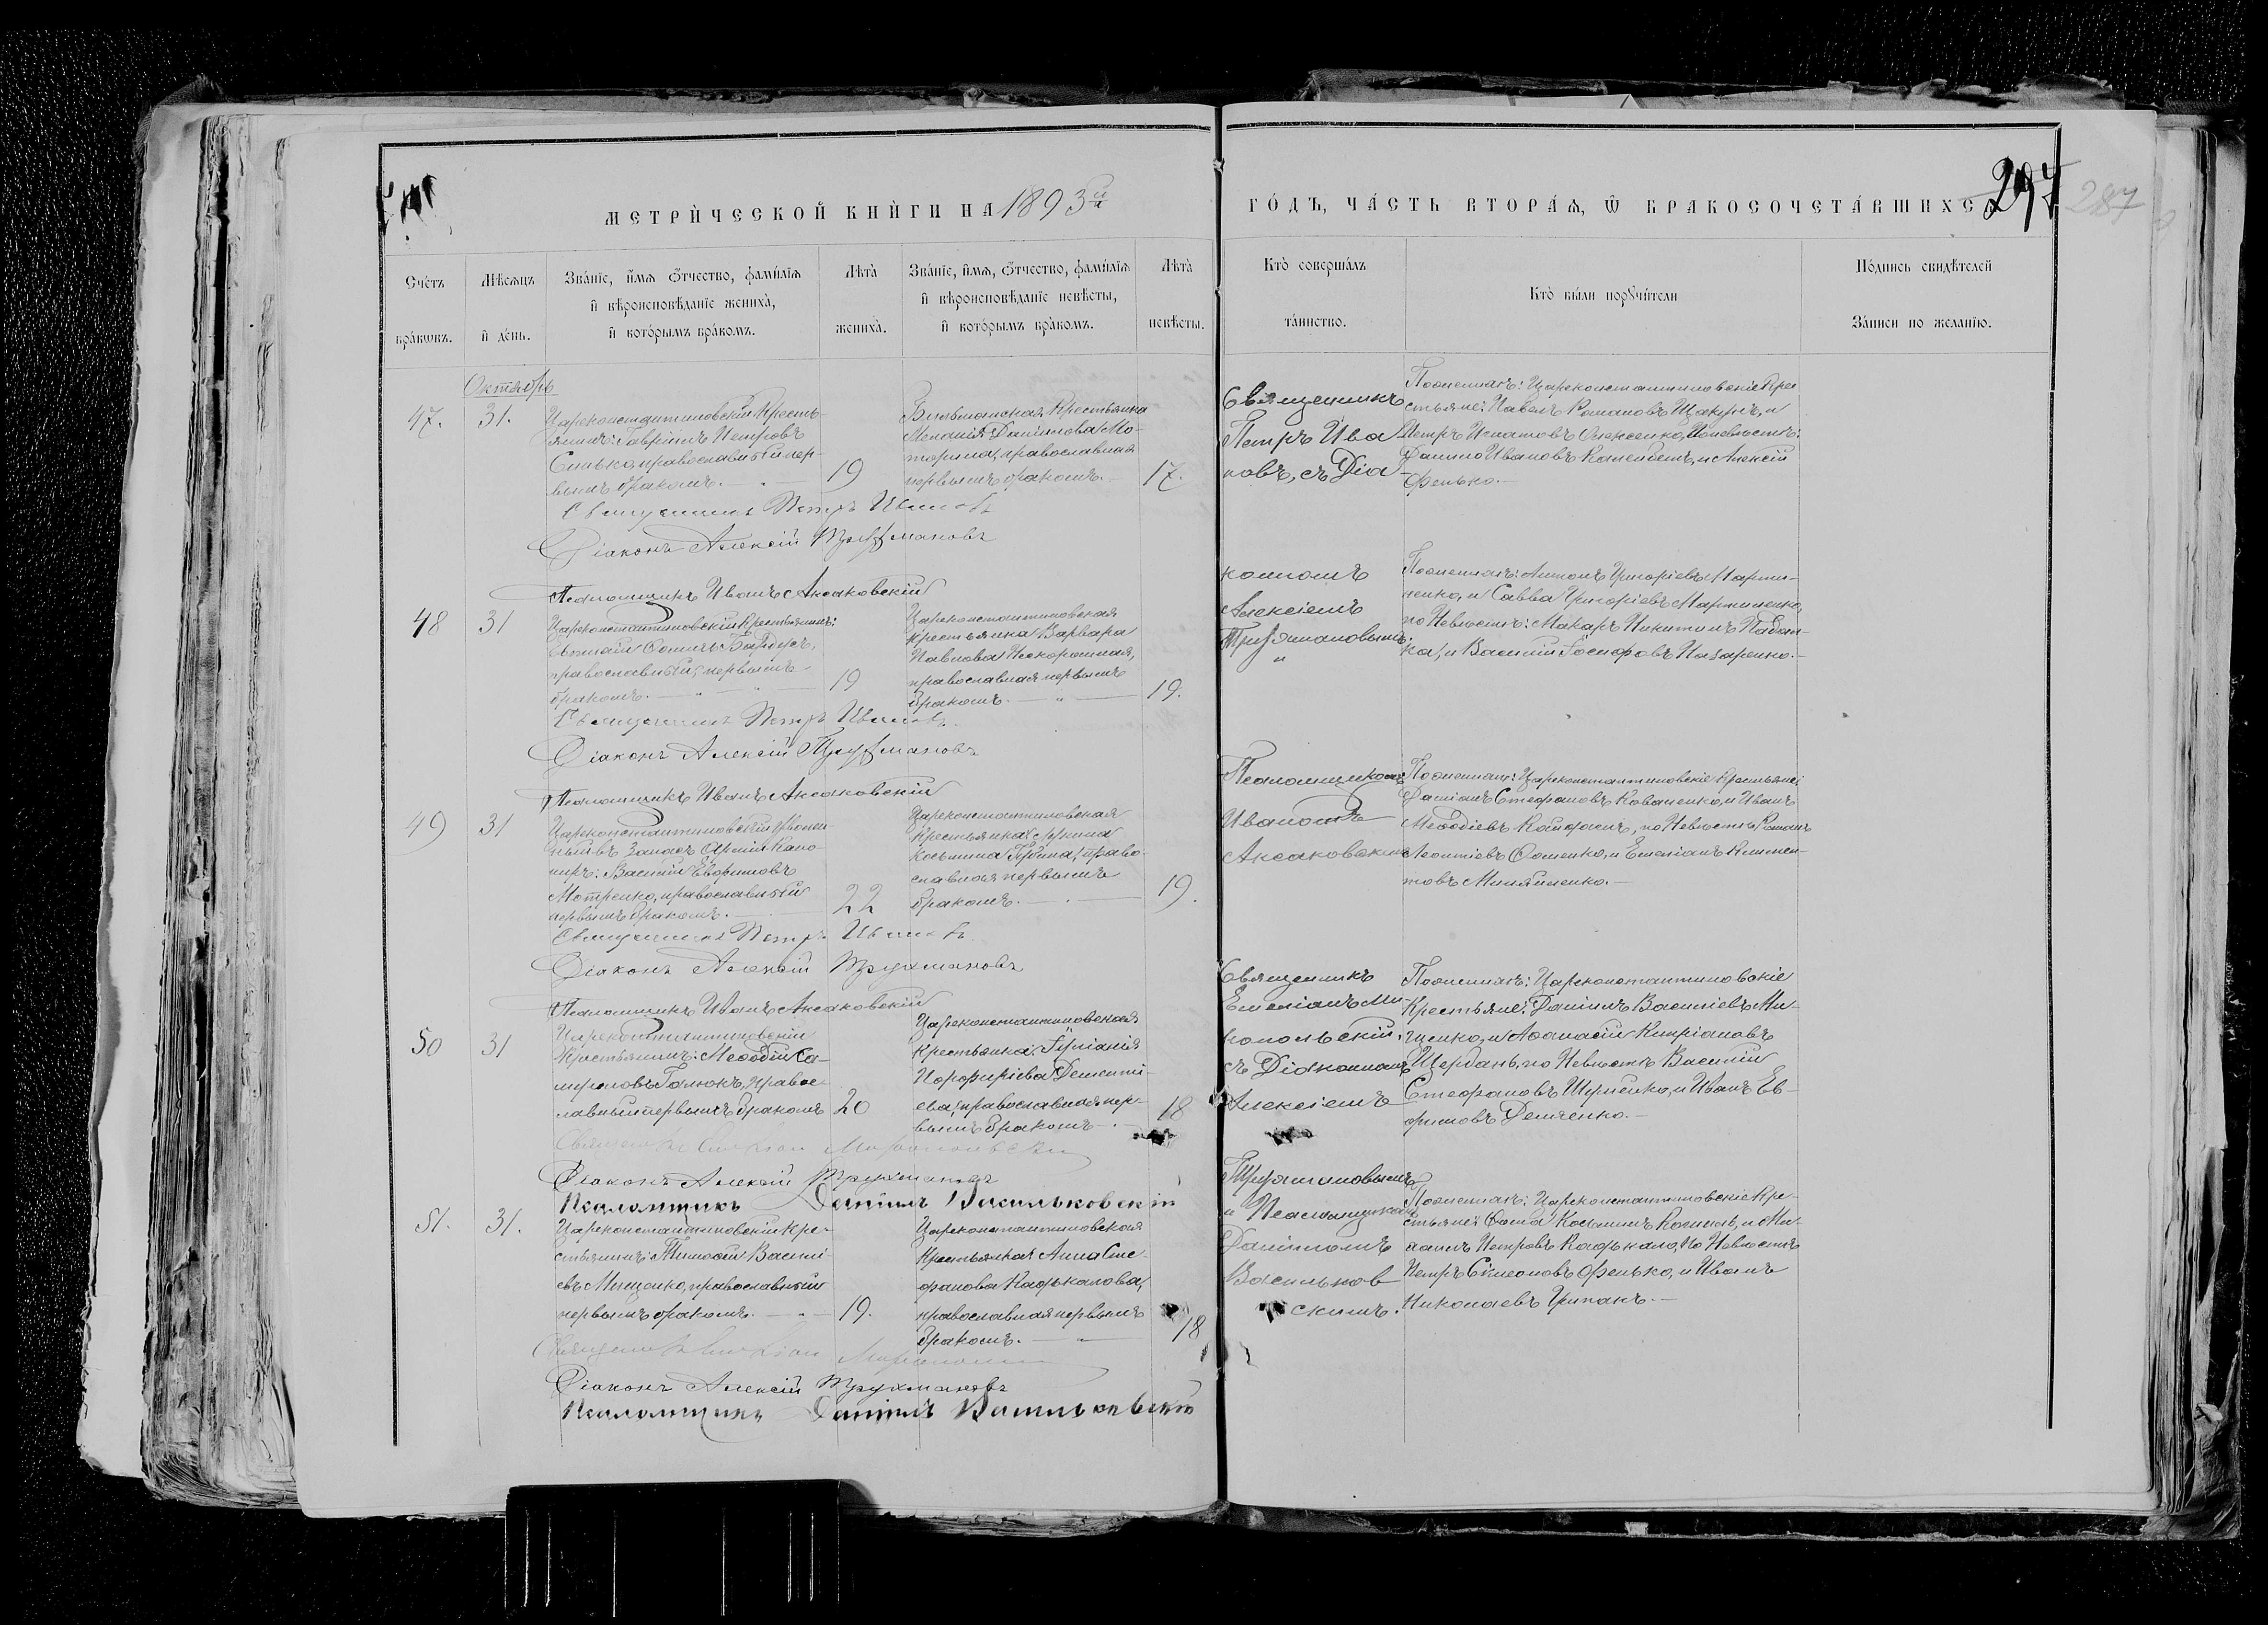 МЕТРИ́ЧЕСКОЙ КНИ́ГИ НА 1893й
ГО́ДЪ, ЧА́СТЬ ВТОРА́Ѧ, Ѿ БРАКОСОЧЕТА́ВШИХСѦ
297
287
Сче́тъ
бра́кѡвъ.
Мѣ́сѧцъ
и де́нь.
Зва́нїе, и́мѧ Ѻ́тчество, фамилїѧ
и вѣроисповѣданїе жениха̀,
и кото́рымъ бра́комъ.
Лѣта̀
жениха̀.
Зва́нїе, и́мѧ, Ѻ́тчество, фамилїѧ
и вѣроисповѣданїе невѣ́сты,
и кото́рымъ бра́комъ.
Лѣта̀
невѣ́сты.
Кто̀ соверша́лъ
та́инство.
Кто̀ бы́ли порꙋчи́тели
По́дпись свидѣ́телей
За́писи по желанїю.
Октябрь
47.
31.
Цареконстантиновскій Кресть-
янинъ: Гавріилъ Петровъ
Сенько, православный пер-
вымъ бракомъ.
19
Крестьянка
Меланія Данилова Мо-
торина, православная
первымъ бракомъ.
17.
Священникъ
Петръ Ива-
новъ, съ Діа-
По женихѣ: Цареконстантиновскіе Кре-
стьяне: Павелъ Романовъ Щакунъ, и
Петръ Игнатовъ Олексенко, По невѣстѣ:
Данило Ивановъ и Алексій
Фенько.
Священникъ Петръ Ивановъ
Діаконъ Алексій Трухмановъ
Псаломщикъ Иванъ Аксаковскій
48
31
Цареконстантиновскій Крестьянинъ:
Ѳоминъ Бардусъ,
православный, первымъ
бракомъ.
19
Цареконстантиновская
Крестьянка Варвара
Павлова Нескоромная,
православная первымъ
бракомъ.
19.
кономъ
Алексіемъ
Трухмановымъ.
и
По женихѣ: Антонъ Григоріевъ Марти-
ненко, и Савва Григоріевъ Мартиненко,
по Невѣстѣ: Макаръ Никитинъ
и Василій Іосифовъ Назаренко.
Священникъ Петръ Ивановъ
Діаконъ Алексій Трухмановъ
Псаломщикъ Иванъ Аксаковскій
49
31
Цареконстантиновскій
въ Запасъ Арміи Кано-
ниръ: Василій Евфимовъ
Мотренко, православный
первымъ бракомъ.
22
Цареконстантиновская
Крестьянка: Ирина
Козьмина православная первымъ
бракомъ.
19.
Псаломщикомъ
Иваномъ
Аксаковскимъ
По женихѣ: Цареконстантиновскіе Крестьяне:
Даміанъ Стефановъ Коваленко, и Иванъ
Меѳодіевъ по Невѣстѣ Романъ
Леонтіевъ Ѳоменко, и Емеліанъ Климен-
товъ
Священникъ Петръ Ивановъ
Діаконъ Алексій Трухмановъ
Псаломщикъ Иванъ Аксаковскій
50
31
Цареконстантиновскій
Крестьянинъ: Меѳодій Са-
мсоновъ правос-
лавный первымъ бракомъ
20
Цареконстантиновская
Крестьянка: Іуліанія
Порфиріева Дементі-
ева, православная пер-
вымъ бракомъ
18
Священникъ
Емеліанъ Ми-
съ Діакономъ
Алексіемъ
По женихѣ: Цареконстантиновскіе
Крестьяне: Даніилъ Василіевъ Ми-
щенко, и Аѳанасій Кипріановъ
Щербань, по Невѣстѣ Василій
Стефановъ и Иванъ Ев-
фимовъ Демченко.
Діаконъ Алексій Трухмановъ
Псаломщикъ Даніилъ Васильковскій
51.
31.
Цареконстантиновскій Кре-
стьянинъ: Тимоѳей Васили-
евъ Мищенко, православный
первымъ бракомъ.
19.
Цареконстантиновская
Крестьянка: Анна Сте-
фанова Кафькалова,
православная первымъ
бракомъ.
18
Трухмановымъ
и Псаломщикомъ
Даніиломъ
Васильков-
скимъ.
По женихѣ: Цареконстантиновскіе Кре-
стьяне: Ѳома Козьминъ и Ми-
хаилъ Петровъ Кафькало, По Невѣстѣ
Петръ Симеоновъ Фенько, и Иванъ
Николаевъ Грипакъ.
Діаконъ Алексій Трухмановъ
Псаломщикъ Даніилъ Васильковскій